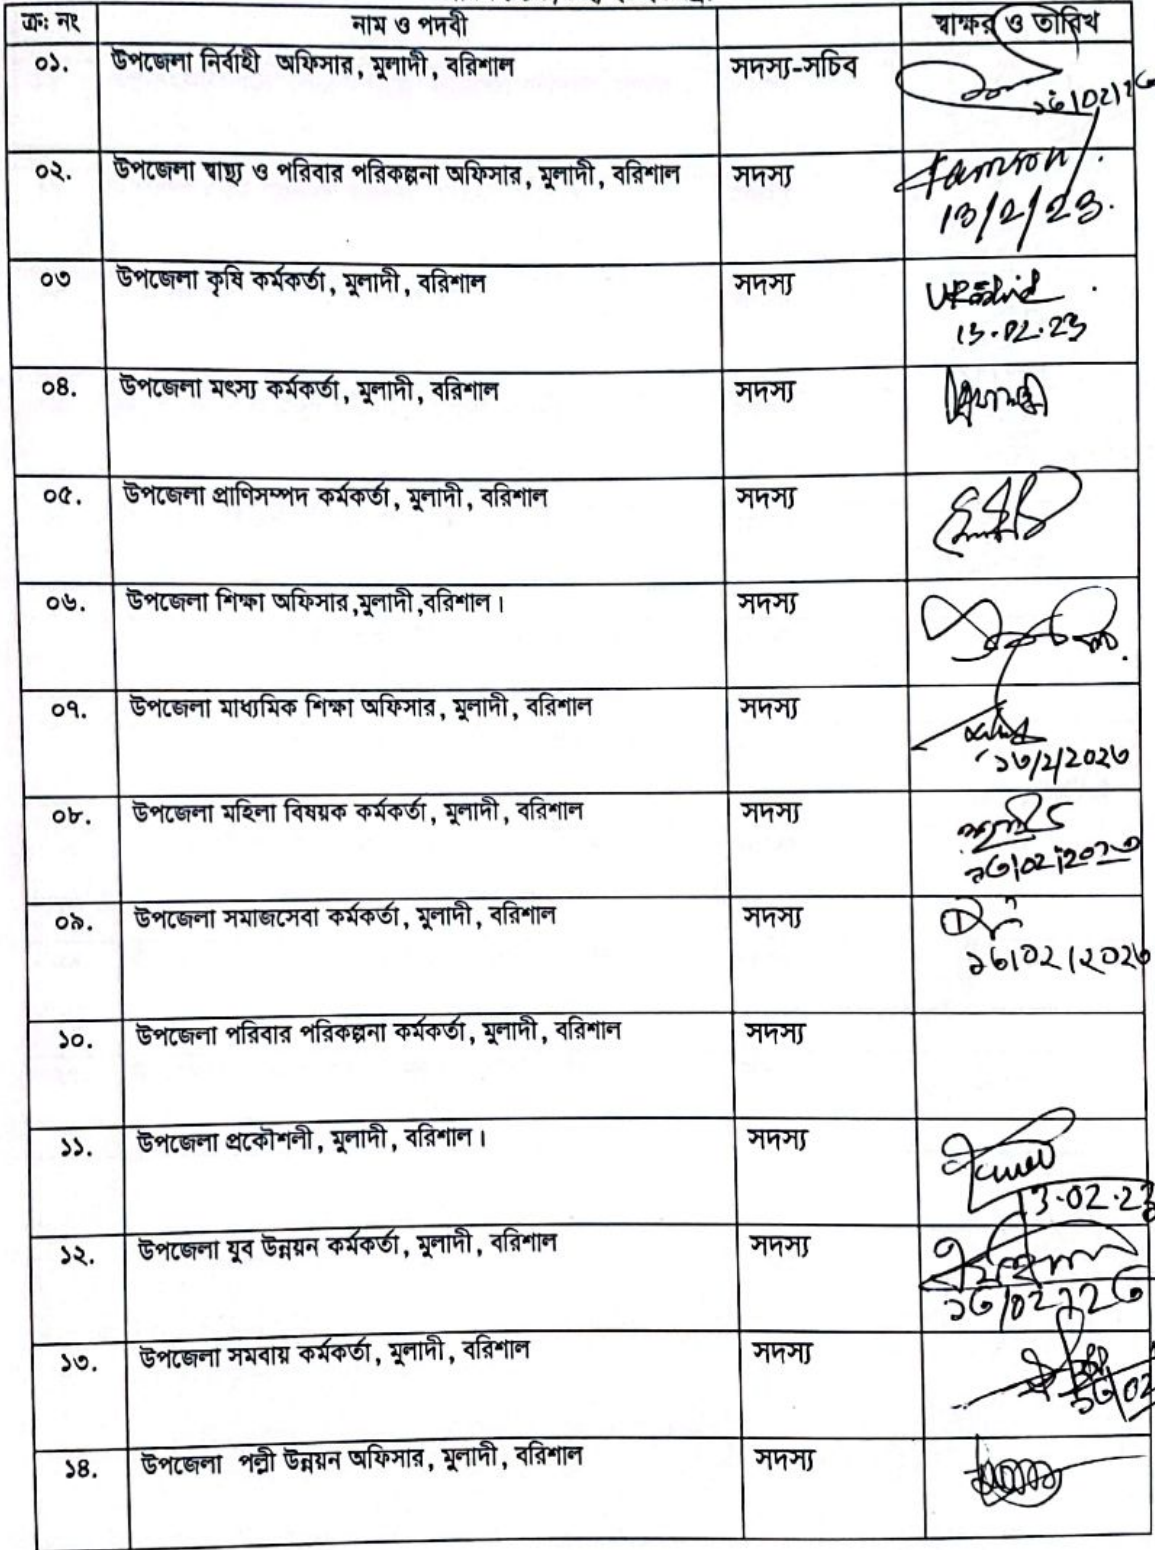 ক্র: নং নাম ও পদবী স্বাক্ষর ও তারিখ
০১. উপজেলা নির্বাহী অফিসার, মুলাদী, বরিশাল সদস্য-সচিব
১৩/০২/২৩
০২. উপজেলা স্বাস্থ্য ও পরিবার পরিকল্পনা অফিসার, মুলাদী, বরিশাল সদস্য
13/2/23.
০৩ উপজেলা কৃষি কর্মকর্তা, মুলাদী, বরিশাল সদস্য
13.02.23
০৪. উপজেলা মৎস্য কর্মকর্তা, মুলাদী, বরিশাল সদস্য
০৫. উপজেলা প্রাণিসম্পদ কর্মকর্তা, মুলাদী, বরিশাল সদস্য
০৬. উপজেলা শিক্ষা অফিসার,মুলাদী,বরিশাল। সদস্য
০৭. উপজেলা মাধ্যমিক শিক্ষা অফিসার, মুলাদী, বরিশাল সদস্য
১৩/২/২০২৩
০৮. উপজেলা মহিলা বিষয়ক কর্মকর্তা, মুলাদী, বরিশাল সদস্য
১৩/০২/২০২৩
০৯. উপজেলা সমাজসেবা কর্মকর্তা, মুলাদী, বরিশাল সদস্য
১৩/০২/২০২৩
১০. উপজেলা পরিবার পরিকল্পনা কর্মকর্তা, মুলাদী, বরিশাল সদস্য
১১. উপজেলা প্রকৌশলী, মুলাদী, বরিশাল। সদস্য
13.02.23
১২. উপজেলা যুব উন্নয়ন কর্মকর্তা, মুলাদী, বরিশাল সদস্য
১৩/০২/২৩
১৩. উপজেলা সমবায় কর্মকর্তা, মুলাদী, বরিশাল সদস্য
১৪. উপজেলা পল্লী উন্নয়ন অফিসার, মুলাদী, বরিশাল সদস্য